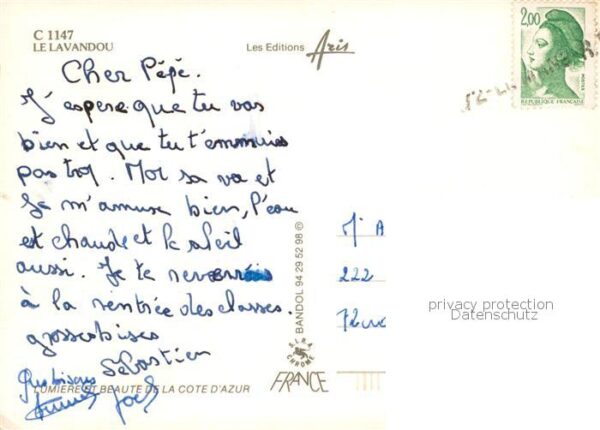 C 1147
LE LAVANDOU
Les Editions Aris
2,00
POSTES
REPUBLIQUE FRANÇAISE
Cher Pépé.
J'espere que tu vas
bien et que tu t'emmuies
pas trop. Moi sa va et
Je m'amuse bien, l'eau
est chaude et le soleil
aussi. Je te reverrais
à la rentrée des classes.
grosses bises
Sébastien
Gros bisous
Joël
LUMIERE ET BEAUTE DE LA COTE D'AZUR
BANDOL 94 29 52 98 ©
FRANCE
M. A
222
privacy protection
Datenschutz